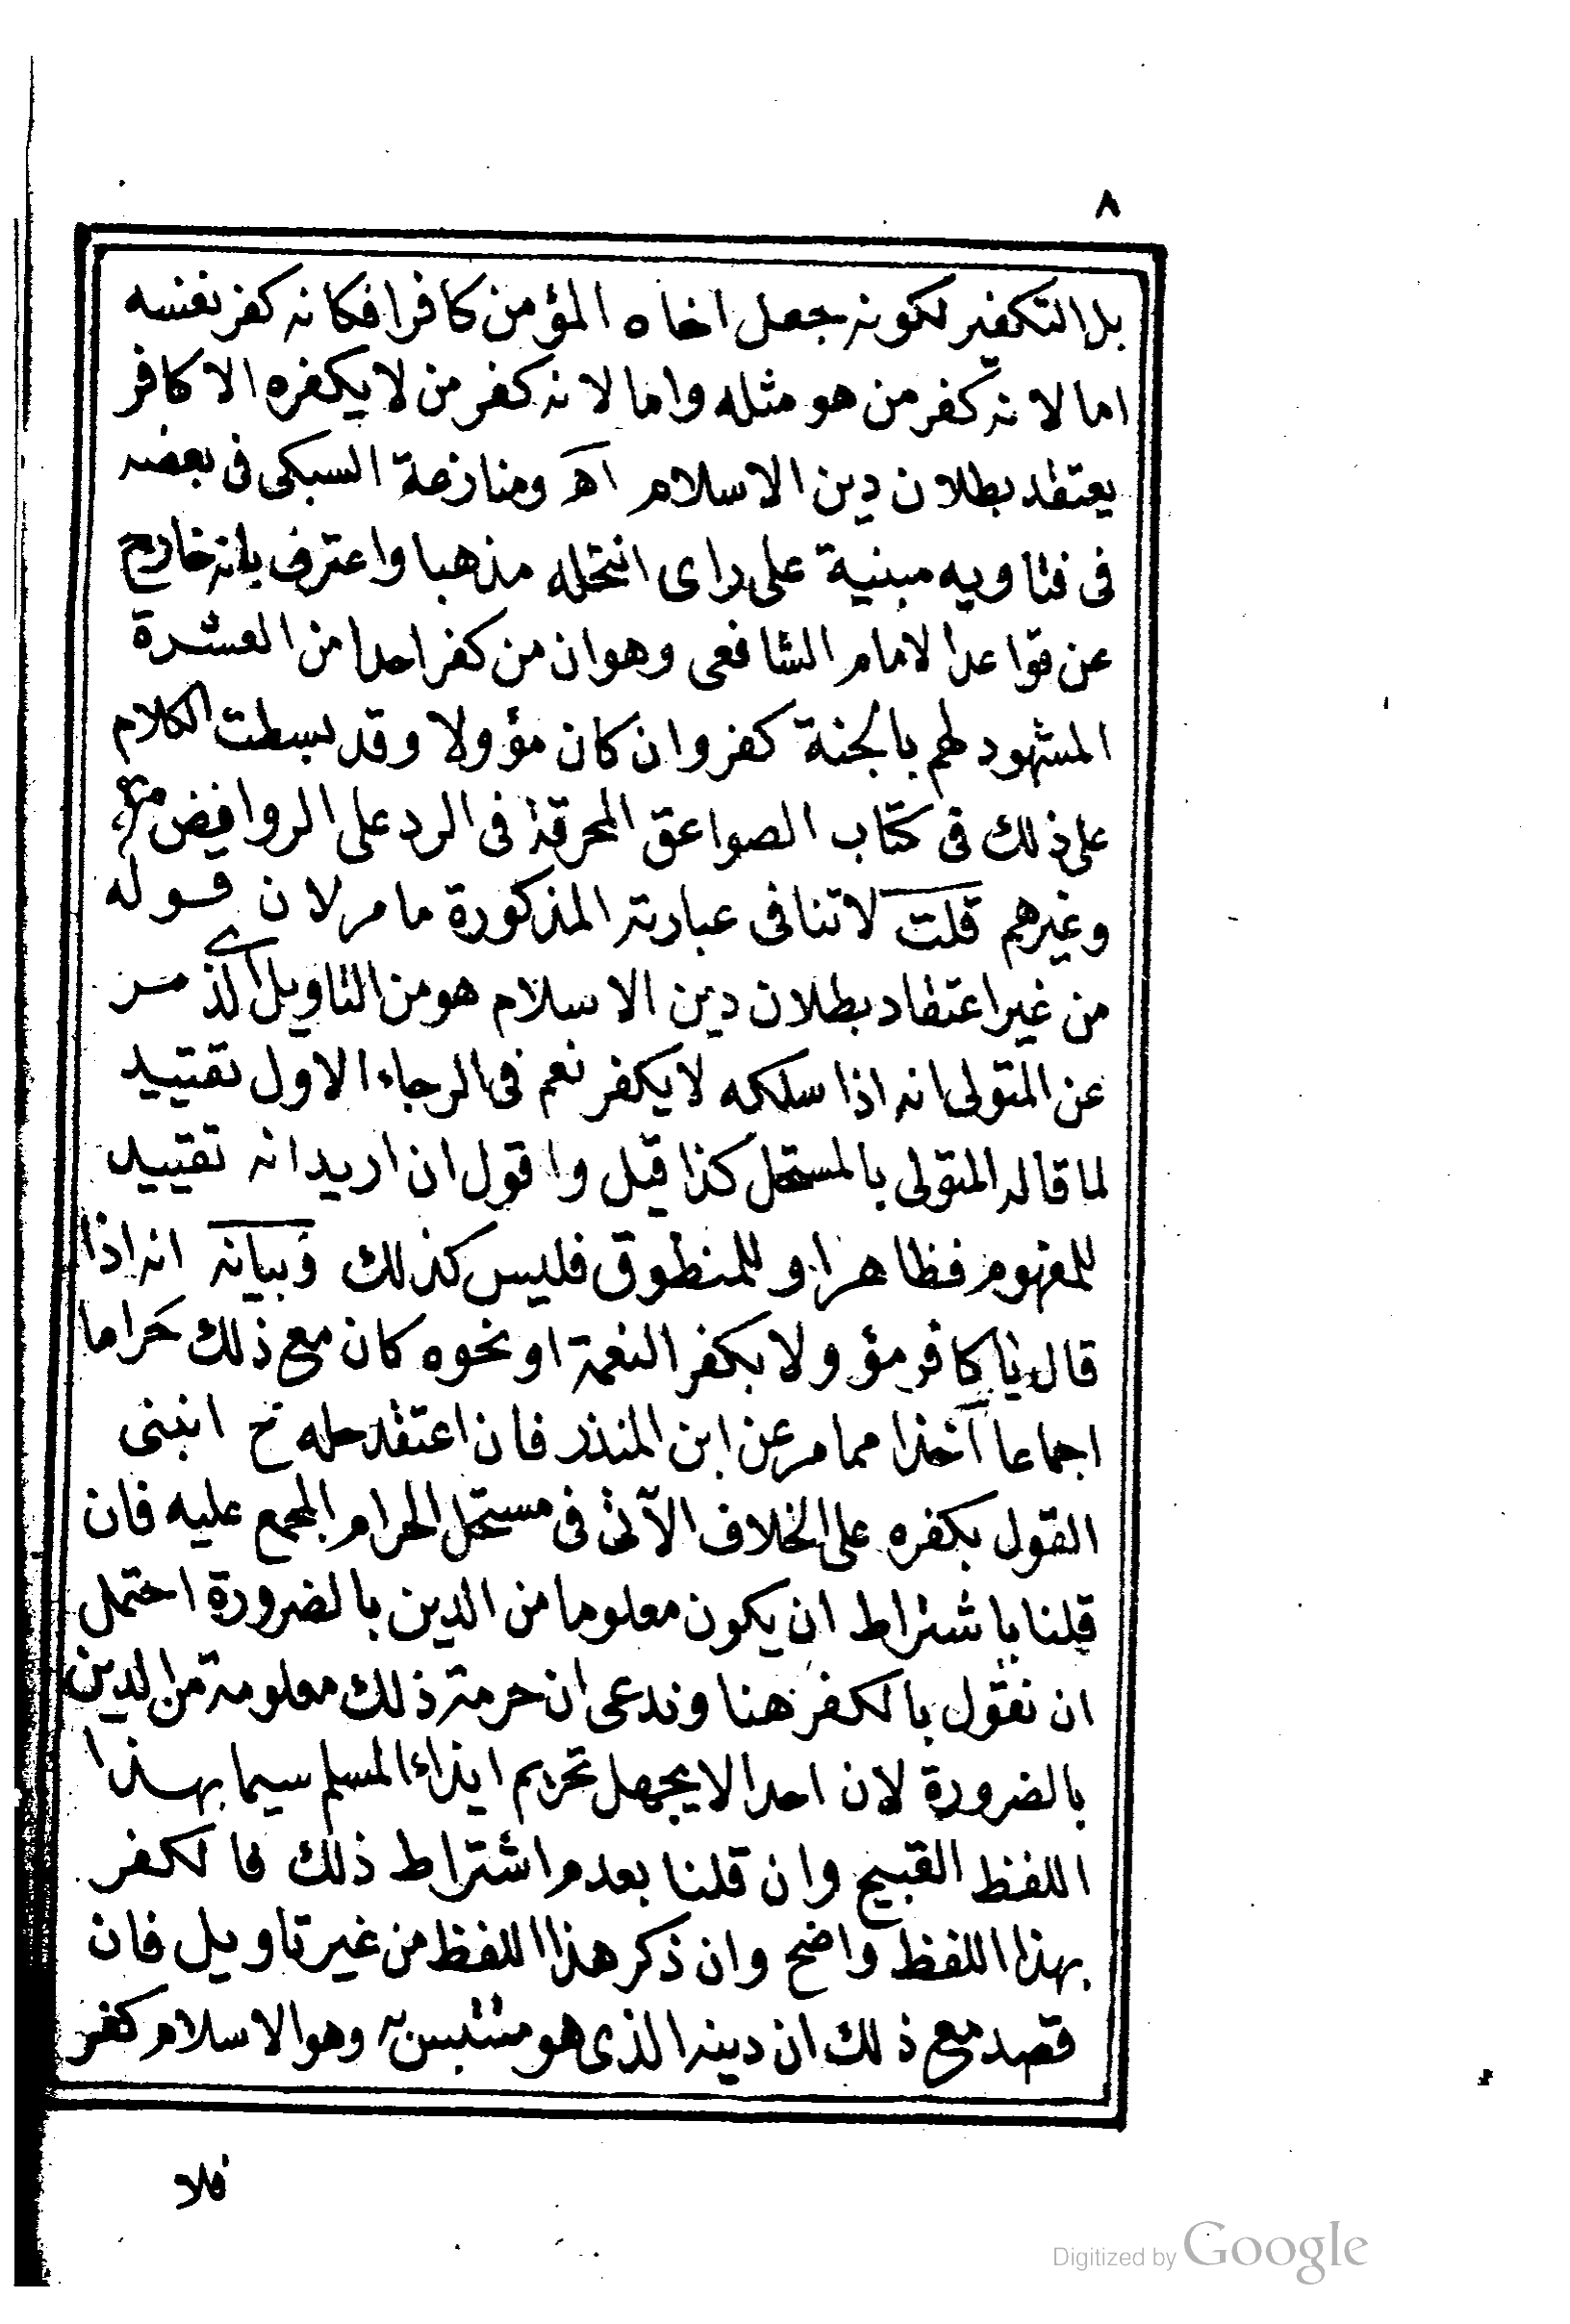 ٨
بل التكفير لكونه جعل اخاه المؤمن كافرا فكانه كفر نفسه
اما لانه كفر من هو مثله واما لانه كفر من لا يكفره الا كافر
يعتقد بطلان دين الاسلام اه ومنازعة السبكى فى بعضه
فى فتاويه مبنية على راى انتحله مذهبا واعترف بانه خارج
عن قواعد الامام الشافعى وهو ان من كفر احدا من العشرة
المشهود لهم بالجنة كفر وان كان مؤولا وقد بسطت الكلام
على ذلك فى كتاب الصواعق المحرقة فى الرد على الروافض
وغيرهم قلت لا تنافى عبارته المذكورة ما مر لان قوله
من غير اعتقاد بطلان دين الاسلام هو من التاويل الذى مر
عن المتولى انه اذا سلكه لا يكفر نعم فى الرجاء الاول تقييد
لما قاله المتولى بالمستحل كذا قيل واقول ان اريد انه تقييد
للمفهوم فظاهر او للمنطوق فليس كذلك وبيانه انه اذا
قال يا كافر مؤولا بكفر النعمة او نحوه كان مع ذلك حراما
اجماعا آخذا مما مر عن ابن المنذر فان اعتقد حله ح انبنى
القول بكفره على الخلاف الآتى فى مستحل الحرام المجمع عليه فان
قلنا باشتراط ان يكون معلوما من الدين بالضرورة احتمل
ان نقول بالكفر هنا وندعى ان حرمة ذلك معلومة من الدين
بالضرورة لان احدا لا يجهل تحريم ايذاء المسلم سيما بهذا
اللفظ القبيح وان قلنا بعدم اشتراط ذلك فالكفر
بهذا اللفظ واضح وان ذكر هذا اللفظ من غير تاويل فان
قصد مع ذلك ان دينه الذى هو متلبس به وهو الاسلام كفر
فلا
Digitized by Google